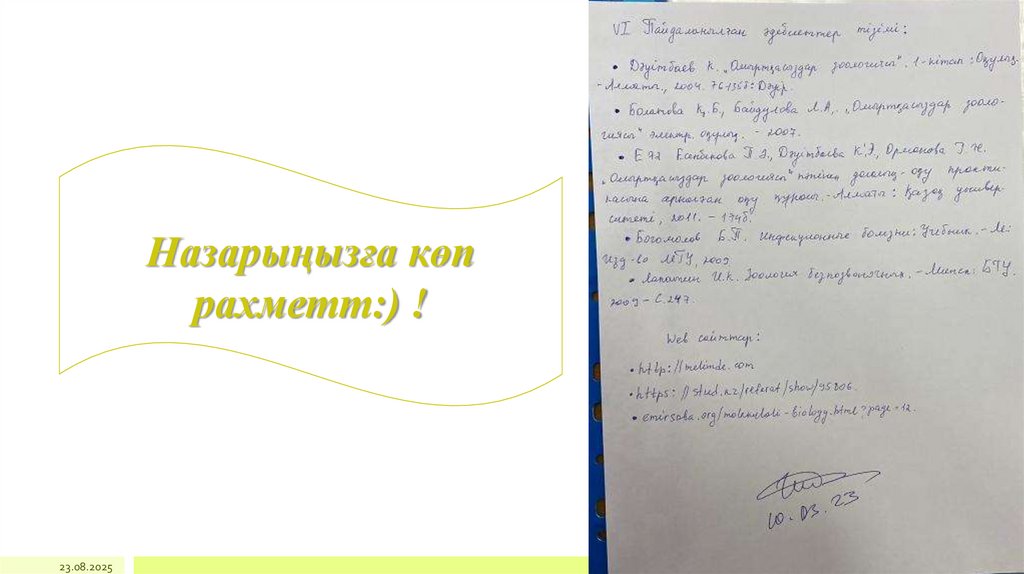 Назарыңызға көп
рахметт:) !
23.08.2025
VI Пайдаланылған әдебиеттер тізімі:
• Дәуітбаев К. „Омыртқасыздар зоологиясы". 1-кітап: Оқулық.
-Алматы., 2004. 76-135б: Дәуір.
• Болатова Қ.Б., Байдулова Л.А,. „Омыртқасыздар зооло-
гиясы" электр. оқулық. - 2007.
• Е 92 Есенбекова П.Э., Дәуітбаева К.Ә., Орманова Г. Ж.
„Омыртқасыздар зоологиясы" пәнінің далалық-оқу практи-
касына арналған оқу құралы.-Алматы: Қазақ универ-
ситеті, 2011. - 174б.
• Богомолов Б.П. Инфекционные болезни: Учебник. - М:
Изд-во МГУ, 2009
• Лапатин И.К. Зоология безпозваночных. - Минск: БГУ.
2009 - С. 247.
Web сайттар:
• http://melimde.com
• https://stud.kz/referat/show/95806.
• emirsaba.org/molekulali-biology.html?page=12.
10.03.23